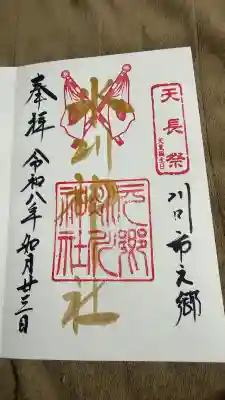 天長祭
天皇誕生日
川口市元郷
氷川神社
元郷氷川神社
奉拝 令和八年 如月廿三日